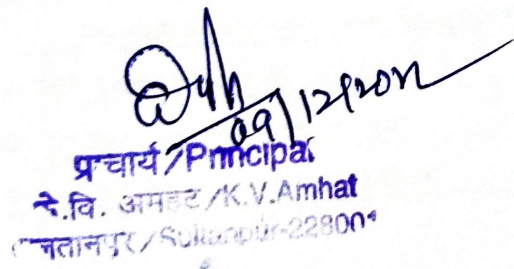 09/12/2022
प्राचार्य/Principal
के.वि. अमहट/K.V.Amhat
सुलतानपुर/Sultanpur-228001